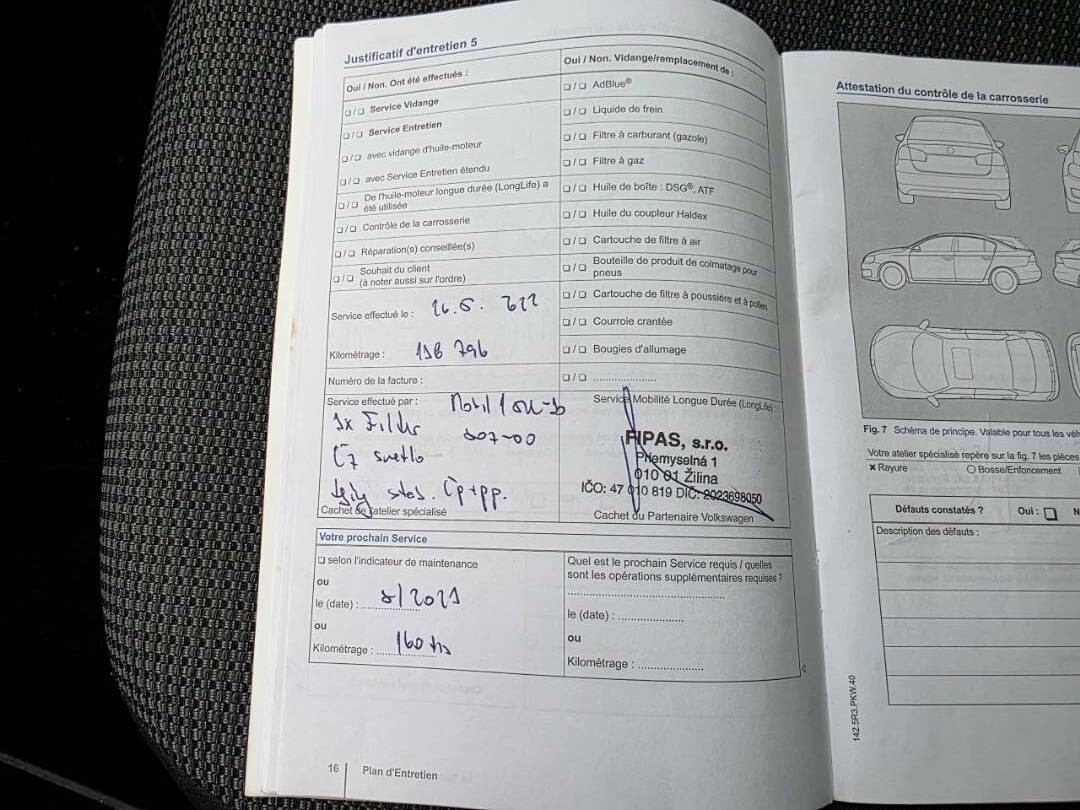 Justificatif d'entretien 5
Oui / Non. Ont été effectués :
❏ / ❏ Service Vidange
❏ / ❏ Service Entretien
❏ / ❏ avec vidange d'huile-moteur
❏ / ❏ avec Service Entretien étendu
❏ / ❏ De l'huile-moteur longue durée (LongLife) a
été utilisée
❏ / ❏ Contrôle de la carrosserie
❏ / ❏ Réparation(s) conseillée(s)
❏ / ❏ Souhait du client
(à noter aussi sur l'ordre)
Service effectué le :
Kilométrage : 796
Numéro de la facture :
Service effectué par : Mobil 1
1x
svetlo
Cachet de l'atelier spécialisé
Oui / Non. Vidange/remplacement de :
❏ / ❏ AdBlue®
❏ / ❏ Liquide de frein
❏ / ❏ Filtre à carburant (gazole)
❏ / ❏ Filtre à gaz
❏ / ❏ Huile de boîte : DSG®, ATF
❏ / ❏ Huile du coupleur Haldex
❏ / ❏ Cartouche de filtre à air
❏ / ❏ Bouteille de produit de colmatage pour
pneus
❏ / ❏ Cartouche de filtre à poussière et à pollen
❏ / ❏ Courroie crantée
❏ / ❏ Bougies d'allumage
❏ / ❏ .....................
Service Mobilité Longue Durée (LongLife) :
FIPAS, s.r.o.
Priemyselná 1
010 01 Žilina
IČO: 47 010 819 DIČ: 2023698050
Cachet du Partenaire Volkswagen
Votre prochain Service
❏ selon l'indicateur de maintenance
ou
le (date) : 8/2021
ou
Kilométrage : 160 tis
Quel est le prochain Service requis / quelles
sont les opérations supplémentaires requises ?
le (date) : .....................
ou
Kilométrage : .....................
16 Plan d'Entretien
Attestation du contrôle de la carrosserie
Fig. 7 Schéma de principe. Valable pour tous les
Votre atelier spécialisé repère sur la fig. 7 les pièces
× Rayure ○ Bosse/Enfoncement
Défauts constatés ? Oui : ❏ N
Description des défauts :
142.5R3.PKW.40